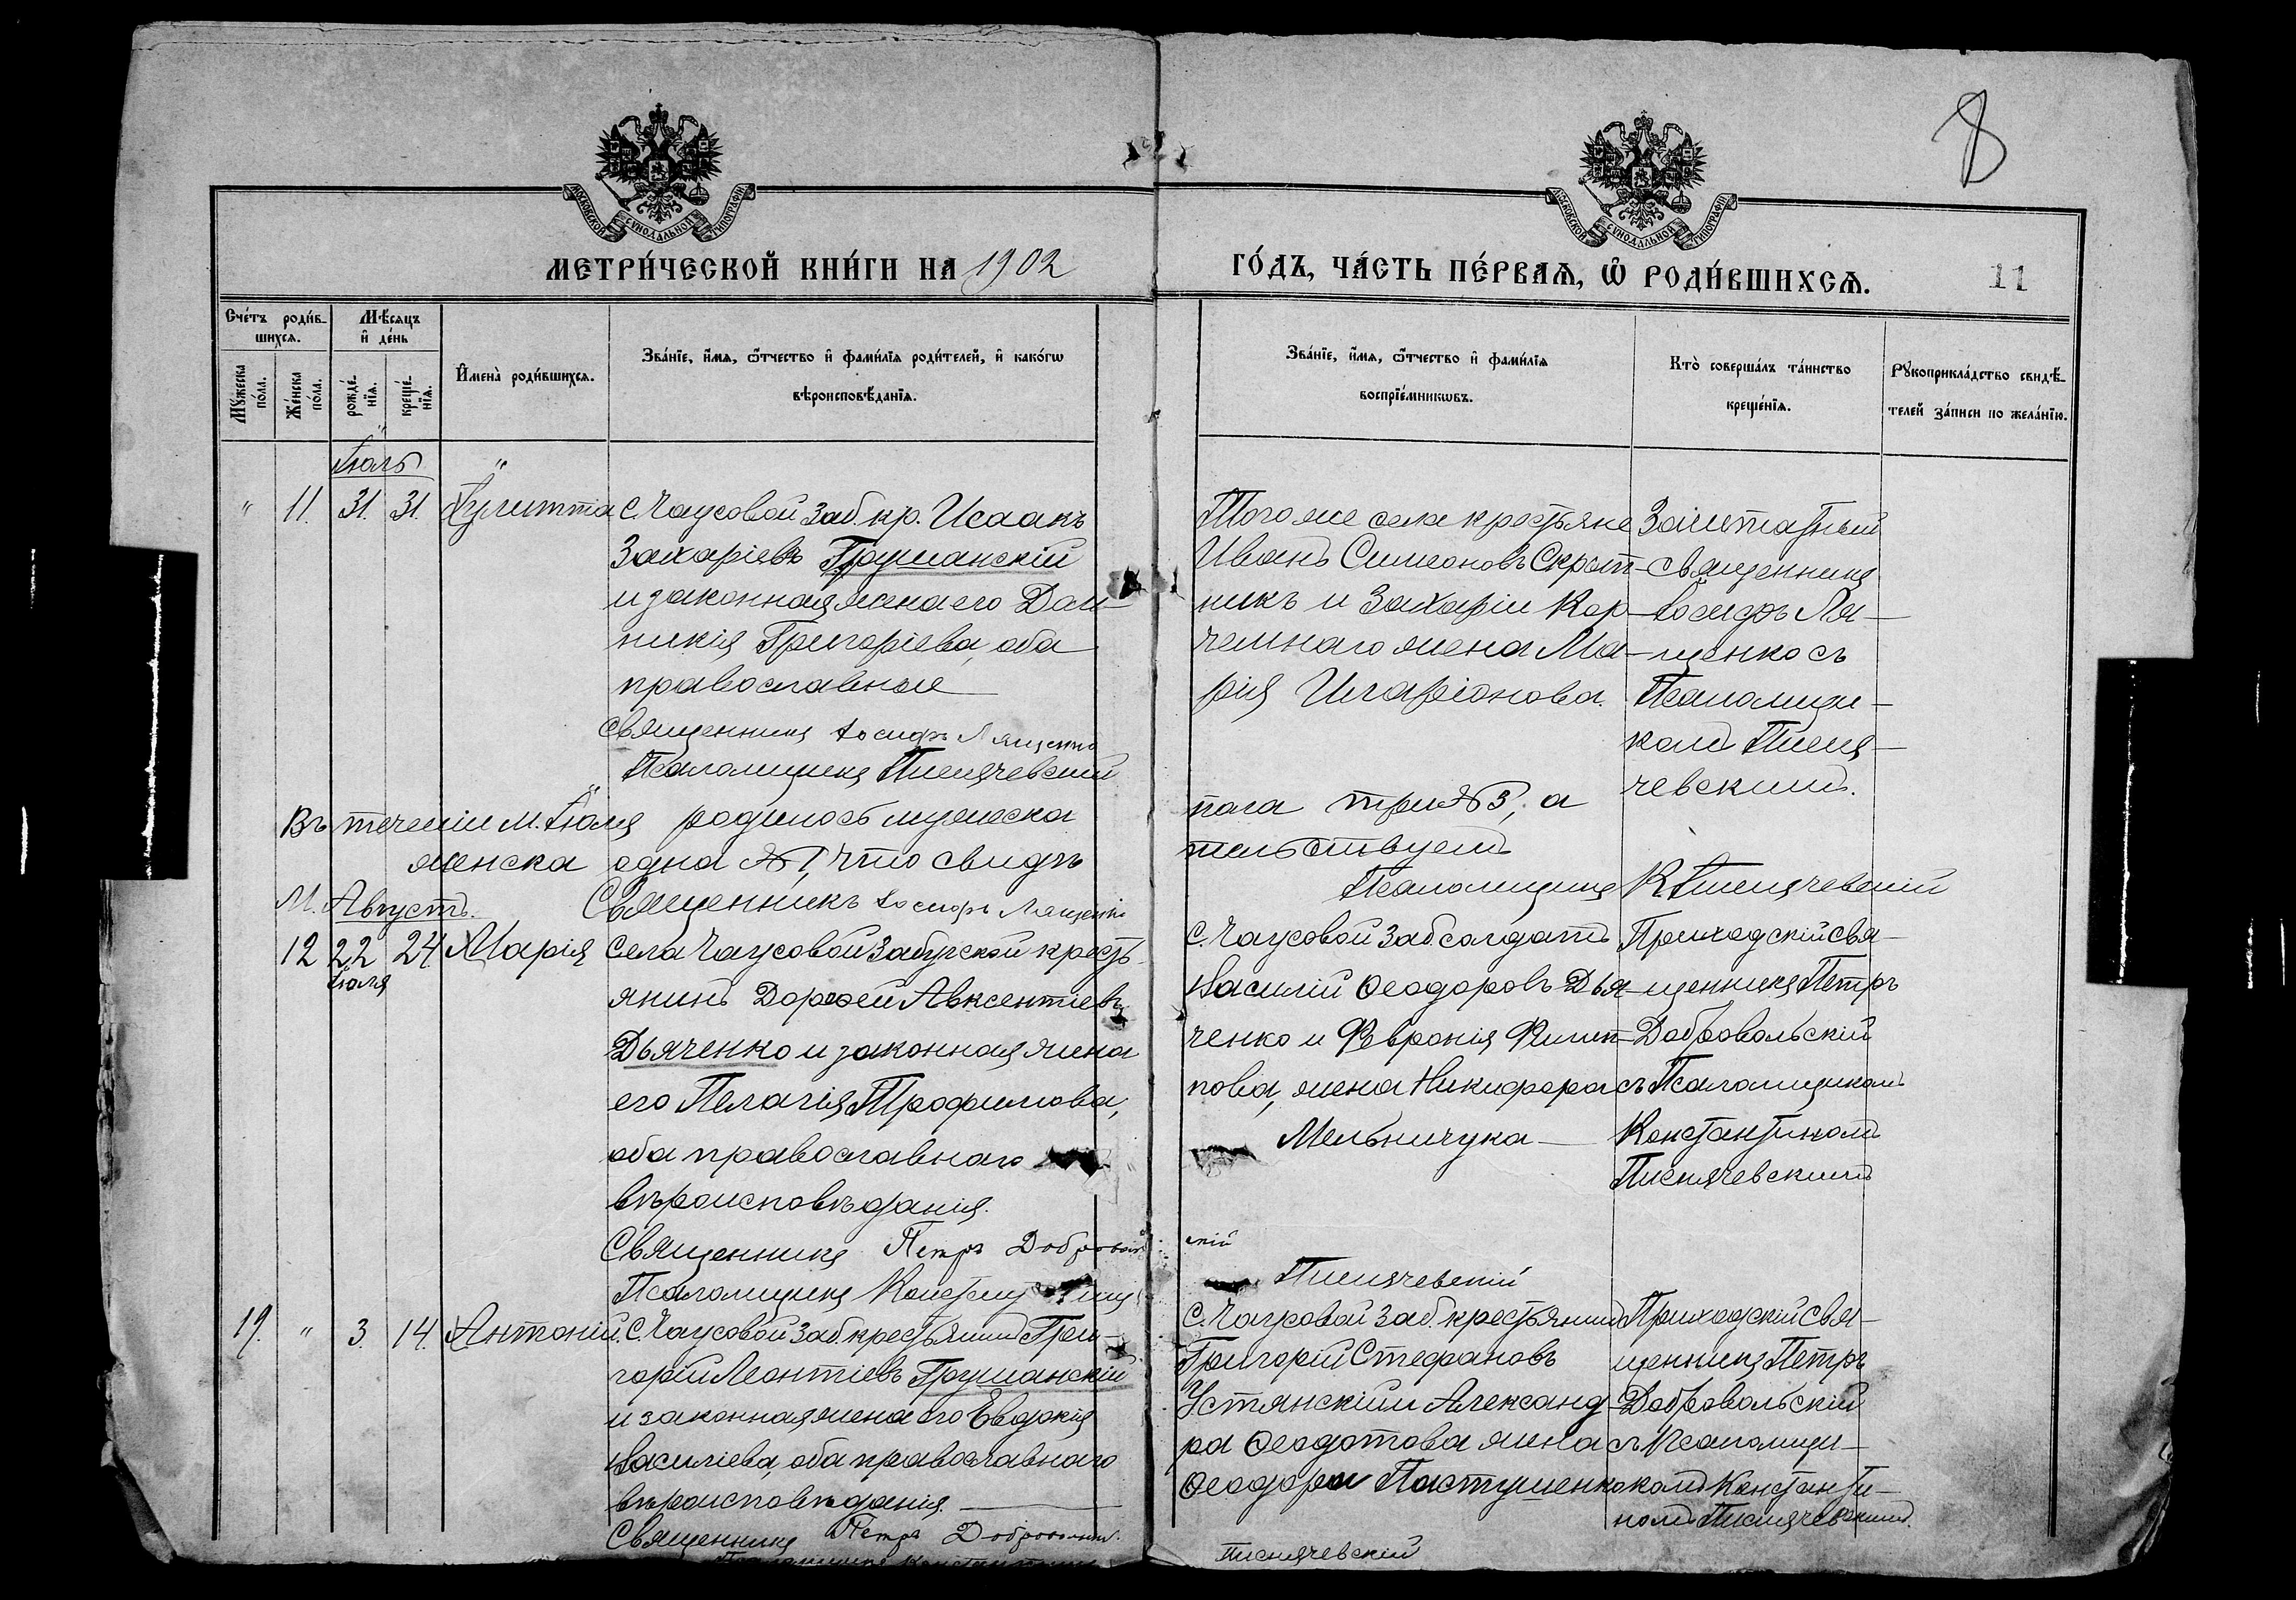 8
МОСКОВСКОЙ СУНОДАЛЬНОЙ ТИПОГРАФІИ
МОСКОВСКОЙ СУНОДАЛЬНОЙ ТИПОГРАФІИ
МЕТРИ́ЧЕСКОЙ КНИ́ГИ НА 1902
ГО́ДЪ, ЧА́СТЬ ПЕ́РВАѦ, Ѽ РОДИ́ВШИХСѦ.
11
Сче́тъ роди́в-
шихсѧ.
Мѣ́сяцъ
и҆ де́нь
Мꙋ́жеска
по́ла.
Же́нска
по́ла.
рожде́-
нїѧ.
креще́-
нїѧ.
И҆мена̀ роди́вшихсѧ.
Зва́нїе, и҆́мѧ, ѻ҆́тчество и҆ фами́лїѧ роди́телей, и҆ како́гѡ
вѣроисповѣ́данїѧ.
Зва́нїе, и҆́мѧ, ѻ҆́тчество и҆ фами́лїѧ
воспрїе́мникѡвъ.
Кто̀ соверша́лъ та́инство
креще́нїѧ.
Рꙋкоприкла́дство свидѣ́-
телей за́писи по жела́нїю.
Іюль
" 11. 31. 31. Іулитта С. Чаусовой Заб. кр. Исаакъ
Захаріевъ Грушанскій
и законная жена его Дом-
никія Григоріева, оба
православные
Священникъ Іосифъ Лященко
Псаломщикъ Писнячевскій
Того же села крестьяне
Иванъ Симеоновъ Скрып-
никъ и Захаріи Кор-
чемнаго жена Ма-
рія Иларіонова.
Заштатный
священникъ
Іосифъ Ля-
щенко съ
Псаломщи-
комъ Писня-
чевскимъ.
Въ теченіи м. Іюля родилось мужеска
пола три №3, а
женска одна №1, что свидѣ
тельствуемъ
Священникъ Іосифъ Лященко
Псаломщикъ К Писнячевскій
М. Августъ.
12 22 24 Марія Села Чаусовой Забугской кресть-
Іюля
янинъ Дорофей Авксентіевъ
Дьяченко и законная жена
его Пелагія Трофимова,
оба православнаго
вѣроисповѣданія.
Священникъ Петръ Доброволь
скій
Псаломщикъ Констант
Писнячевскій
С. Чаусовой Заб. солдатъ
Василій Ѳеодоровъ Дья-
ченко и Февронія Филип-
пова, жена Никифора
Мельничука
Приходскій свя-
щенникъ Петръ
Добровольскій
съ Псаломщикомъ
Константиномъ
Писнячевскимъ
19. " 3. 14. Антоній. С. Чаусовой Заб. крестьянинъ Гри-
горій Леонтіевъ Грушанскій
и законная жена его Евдокія
Василіева, оба православнаго
вѣроисповѣданія.
Священникъ Петръ Добровольскій.
Псаломщикъ Константинъ
Писнячевскій
С. Чаусовой Заб. крестьянинъ
Григорій Стефановъ
Устянскій и Александ-
ра Ѳеодотова жена
Ѳеодора Пастушенко
Приходскій свя-
щенникъ Петръ
Добровольскій
съ псаломщи-
комъ Константи-
номъ Писнячевскимъ.